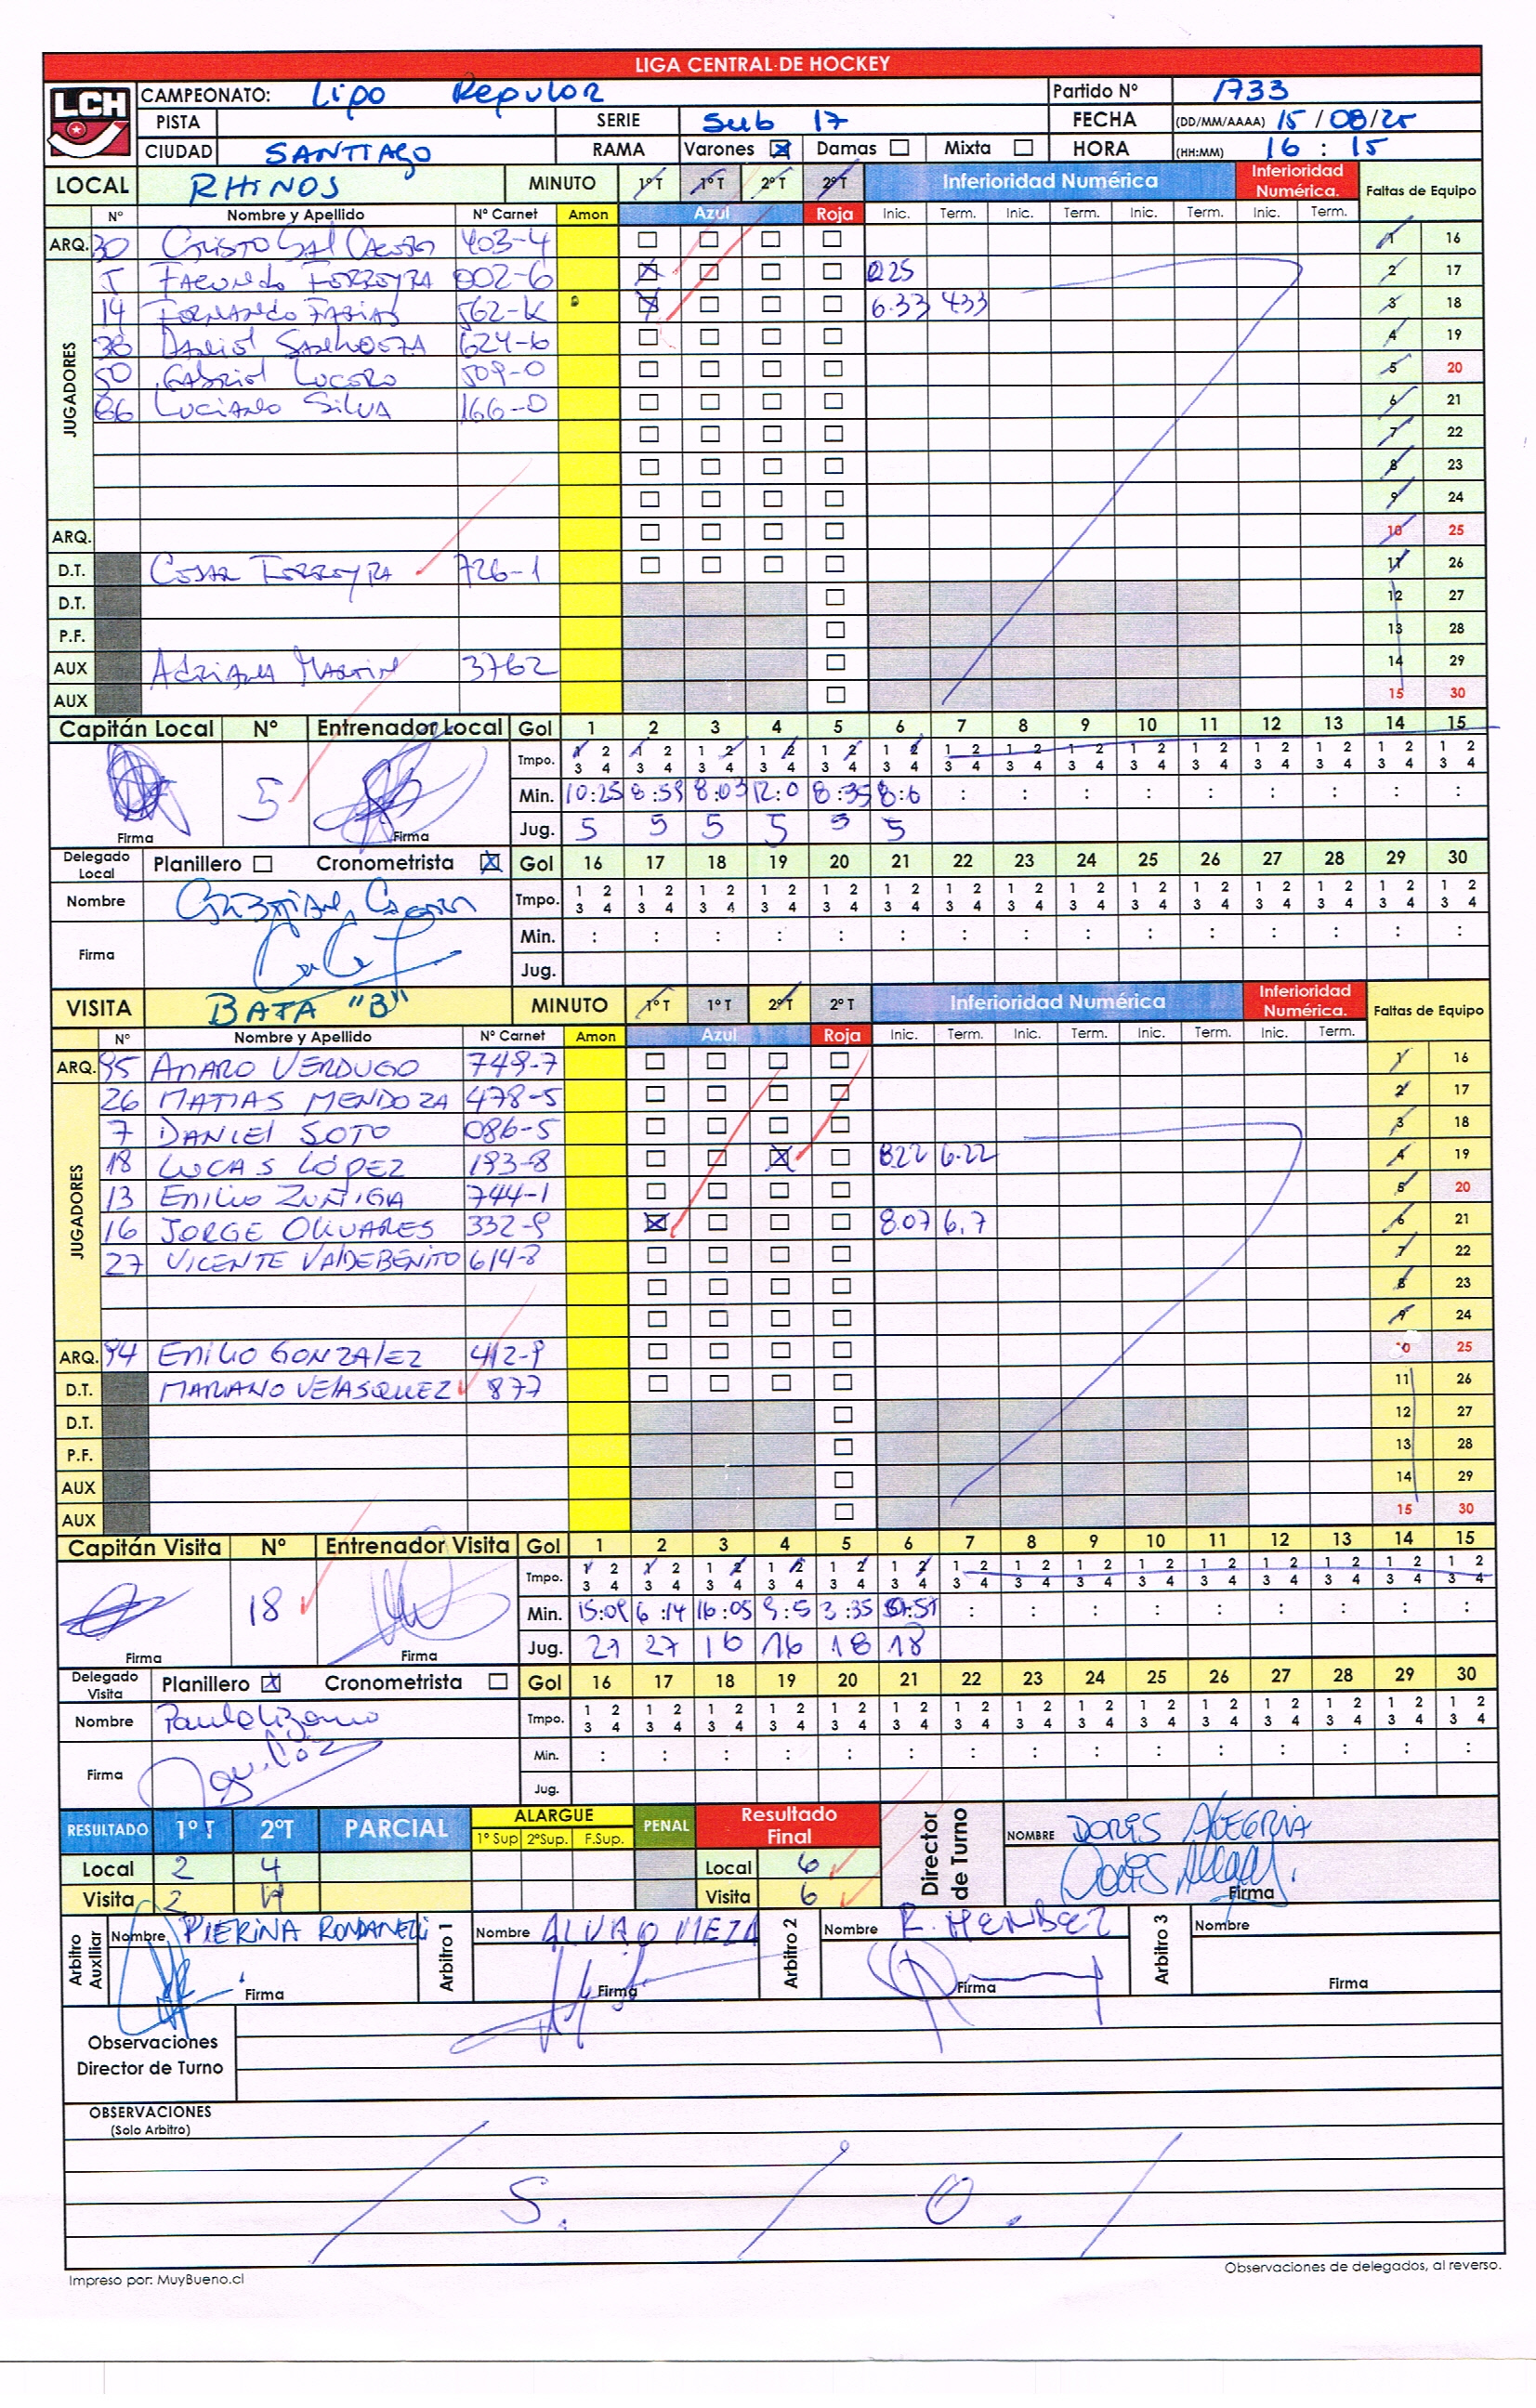 LIGA CENTRAL DE HOCKEY
LCH CAMPEONATO: Lipo Repulor Partido Nº 1733
PISTA SERIE Sub 17 FECHA (DD/MM/AAAA) 15/08/25
CIUDAD SANTIAGO RAMA Varones Damas Mixta HORA (HH:MM) 16:15
LOCAL RHINOS MINUTO 1º T 1º T 2º T 2º T Inferioridad Numérica Inferioridad Numérica. Faltas de Equipo
Nº Nombre y Apellido Nº Carnet Amon Azul Roja Inic. Term. Inic. Term. Inic. Term. Inic. Term.
ARQ. 30 403-4 1 16
JUGADORES
5 Facundo Ferreyra 002-6 2 17
14 Fernando Farias 562-K 6.33 433 3 18
38 624-6 4 19
50 Gabriel Lucero 509-0 5 20
86 Luciano Silva 166-0 6 21
7 22
8 23
9 24
ARQ. 10 25
D.T. Cesar Ferreyra 726-1 11 26
D.T. 12 27
P.F. 13 28
AUX Adriana 3762 14 29
AUX 15 30
Capitán Local Nº Entrenador Local Gol 1 2 3 4 5 6 7 8 9 10 11 12 13 14 15
Tmpo. 1 2 3 4 1 2 3 4 1 2 3 4 1 2 3 4 1 2 3 4 1 2 3 4 1 2 3 4 1 2 3 4 1 2 3 4 1 2 3 4 1 2 3 4 1 2 3 4 1 2 3 4 1 2 3 4 1 2 3 4
5 Min. 10:25 8:59 8:03 12:0 8:35 8:6 : : : : : : : : :
Firma Firma Jug. 5 5 5 5 5 5
Delegado Local Planillero Cronometrista Gol 16 17 18 19 20 21 22 23 24 25 26 27 28 29 30
Nombre Tmpo. 1 2 3 4 1 2 3 4 1 2 3 4 1 2 3 4 1 2 3 4 1 2 3 4 1 2 3 4 1 2 3 4 1 2 3 4 1 2 3 4 1 2 3 4 1 2 3 4 1 2 3 4 1 2 3 4 1 2 3 4
Firma Min. : : : : : : : : : : : : : : :
Jug.
VISITA BATA "B" MINUTO 1º T 1º T 2º T 2º T Inferioridad Numérica Inferioridad Numérica. Faltas de Equipo
Nº Nombre y Apellido Nº Carnet Amon Azul Roja Inic. Term. Inic. Term. Inic. Term. Inic. Term.
ARQ. 95 AMARO VERDUGO 749-7 1 16
JUGADORES
26 MATIAS MENDOZA 478-5 2 17
7 DANIEL SOTO 086-5 3 18
18 LUCAS LÓPEZ 193-8 822 6.22 4 19
13 EMILIO ZUÑIGA 744-1 5 20
16 JORGE OLIVARES 332-9 8.07 6.7 6 21
27 VICENTE VALDEBENITO 614-8 7 22
8 23
9 24
ARQ. 94 EMILIO GONZALEZ 412-9 10 25
D.T. MARIANO VELASQUEZ 877 11 26
D.T. 12 27
P.F. 13 28
AUX 14 29
AUX 15 30
Capitán Visita Nº Entrenador Visita Gol 1 2 3 4 5 6 7 8 9 10 11 12 13 14 15
Tmpo. 1 2 3 4 1 2 3 4 1 2 3 4 1 2 3 4 1 2 3 4 1 2 3 4 1 2 3 4 1 2 3 4 1 2 3 4 1 2 3 4 1 2 3 4 1 2 3 4 1 2 3 4 1 2 3 4 1 2 3 4
18 Min. 15:09 6:14 16:05 9:5 3:35 : : : : : : : : :
Firma Firma Jug. 27 27 16 16 18 18
Delegado Visita Planillero Cronometrista Gol 16 17 18 19 20 21 22 23 24 25 26 27 28 29 30
Nombre Tmpo. 1 2 3 4 1 2 3 4 1 2 3 4 1 2 3 4 1 2 3 4 1 2 3 4 1 2 3 4 1 2 3 4 1 2 3 4 1 2 3 4 1 2 3 4 1 2 3 4 1 2 3 4 1 2 3 4 1 2 3 4
Firma Min. : : : : : : : : : : : : : : :
Jug.
RESULTADO 1º T 2ºT PARCIAL ALARGUE 1º Sup 2ºSup. F.Sup. PENAL Resultado Final Director de Turno NOMBRE DORIS ALEGRIA
Local 2 4 Local 6
Visita 2 4 Visita 6 Firma
Arbitro Auxiliar Nombre PIERINA RONDANELLI Arbitro 1 Nombre ALVARO MEZA Arbitro 2 Nombre R. MENDEZ Arbitro 3 Nombre
Firma Firma Firma Firma
Observaciones
Director de Turno
OBSERVACIONES
(Solo Arbitro)
/ S. / O. /
Impreso por: MuyBueno.cl Observaciones de delegados, al reverso.